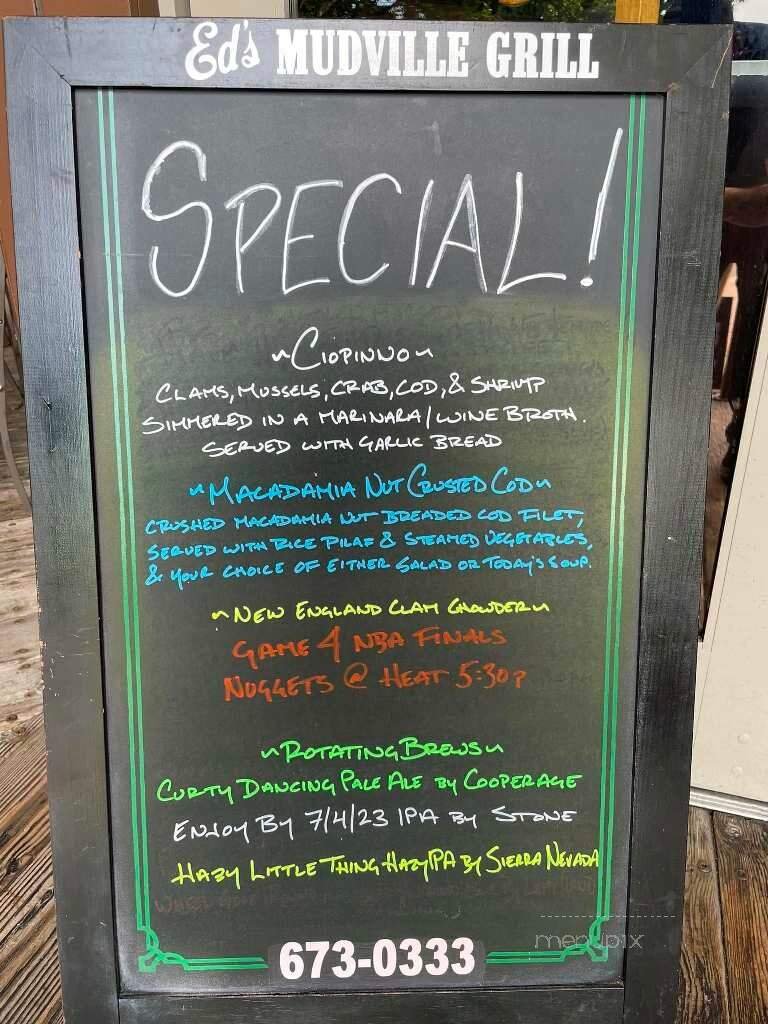 Ed's MUDVILLE GRILL
SPECIAL!
~CIOPINNO~
CLAMS, MUSSELS, CRAB, COD, & SHRIMP
SIMMERED IN A MARINARA/WINE BROTH.
SERVED WITH GARLIC BREAD
~MACADAMIA NUT CRUSTED COD~
CRUSHED MACADAMIA NUT BREADED COD FILET,
SERVED WITH RICE PILAF & STEAMED VEGETABLES,
& YOUR CHOICE OF EITHER SALAD OR TODAY'S SOUP.
~NEW ENGLAND CLAM CHOWDER~
GAME 4 NBA FINALS
NUGGETS @ HEAT 5:30P
~ROTATING BREWS~
CURTY DANCING PALE ALE BY COOPERAGE
ENJOY BY 7/4/23 IPA BY STONE
HAZY LITTLE THING HAZY IPA BY SIERRA NEVADA
673-0333
menupix